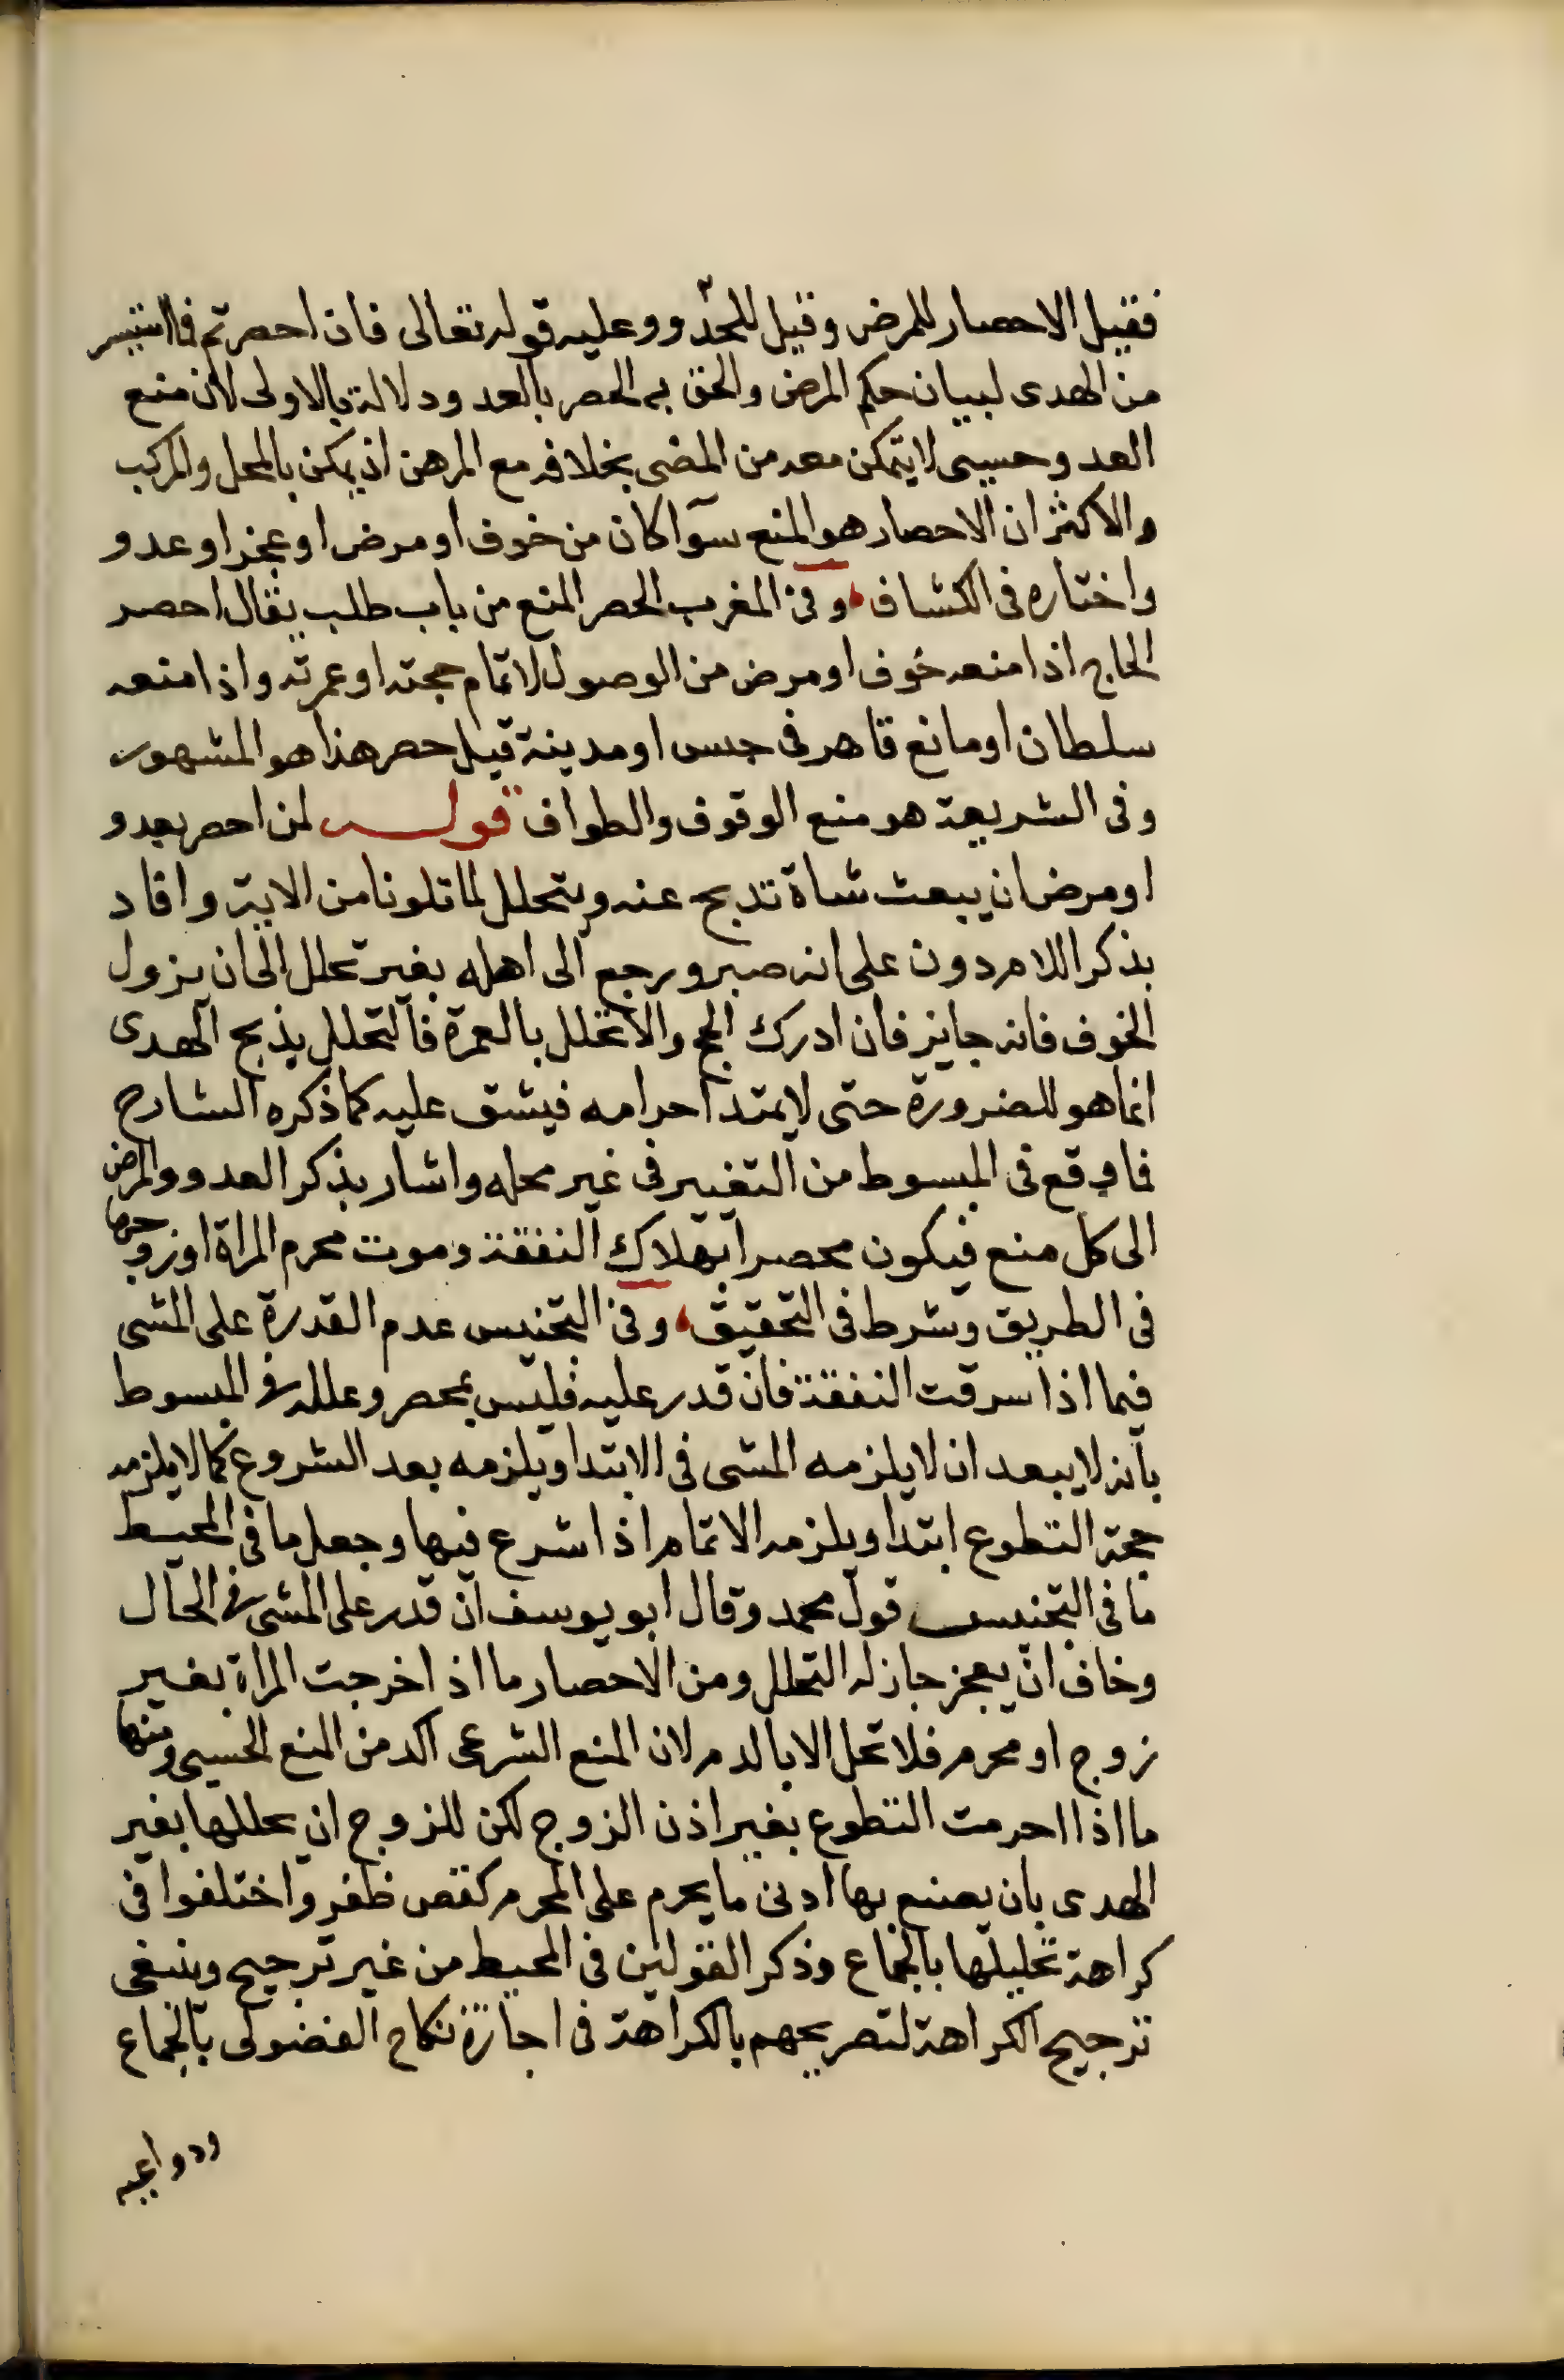 فقيل الاحصار للمرض وقيل للعدو وعليه قوله تعالى فان احصرتم فما استيسر
من الهدى لبيان حكم المرض والحق به الحصر بالعدو دلالة بالاولى لان منع
العدو حسيى لا يتمكن معه من المضى بخلافه مع المرض اذ يمكن بالمحل والمركب
والاكثر ان الاحصار هو المنع سوآ كان من خوف او مرض او عجز او عدو
واختاره فى الكشاف وفى المغرب الحصر المنع من باب طلب يقال احصر
الحاج اذا منعه خوف او مرض من الوصول لاتمام حجته او عمرته واذا منعه
سلطان او مانع قاهر فى حبس او مدينة قيل حصر هذا هو المشهور
وفى الشريعة هو منع الوقوف والطواف قوله لمن احصر بعدو
او مرض ان يبعث شاة تذبح عنه ويتحلل لما تلونا من الاية وافاد
بذكر اللام دون على انه صبر ورجع الى اهله بغير تحلل الى ان يزول
الخوف فانه جايز فان ادرك الحج والا تحلل بالعمرة فالتحلل بذبح الهدى
انما هو للضرورة حتى لا يمتد احرامه فيشق عليه كما ذكره الشارح
فما وقع فى المبسوط من التغيير فى غير محله واشار بذكر العدو والمرض
الى كل منع فيكون محصرا بهلاك النفقة وموت محرم المراة او زوجها
فى الطريق وشرط فى التحقيق وفى التجنيس عدم القدرة على المشى
فيما اذا سرقت النفقة فان قدر عليه فليس بمحصر وعلله فى المبسوط
بانه لا يبعد ان لا يلزمه المشى فى الابتدا ويلزمه بعد الشروع كما لا يلزمه
حجة التطوع ابتدا ويلزمه الاتمام اذا شرع فيها وجعل ما فى المحيط
ما فى التجنيس قول محمد وقال ابو يوسف ان قدر على المشى فى الحال
وخاف ان يعجز جاز له التحلل ومن الاحصار ما اذ اخرجت المراة بغير
زوج او محرم فلا تحل الا بالدم لان المنع الشرعى اكد من المنع الحسيى ومنها
ما اذا احرمت التطوع بغير اذن الزوج لكن للزوج ان يحللها بغير
الهدى بان يصنع بها ادنى ما يحرم على المحرم كقص ظفر واختلفوا فى
كراهة تحليلها بالجماع وذكر القولين فى المحيط من غير ترجيح وينبغى
ترجيح الكراهة لتصريحهم بالكراهة فى اجازة نكاح الفضولى بالجماع
ودواعيه